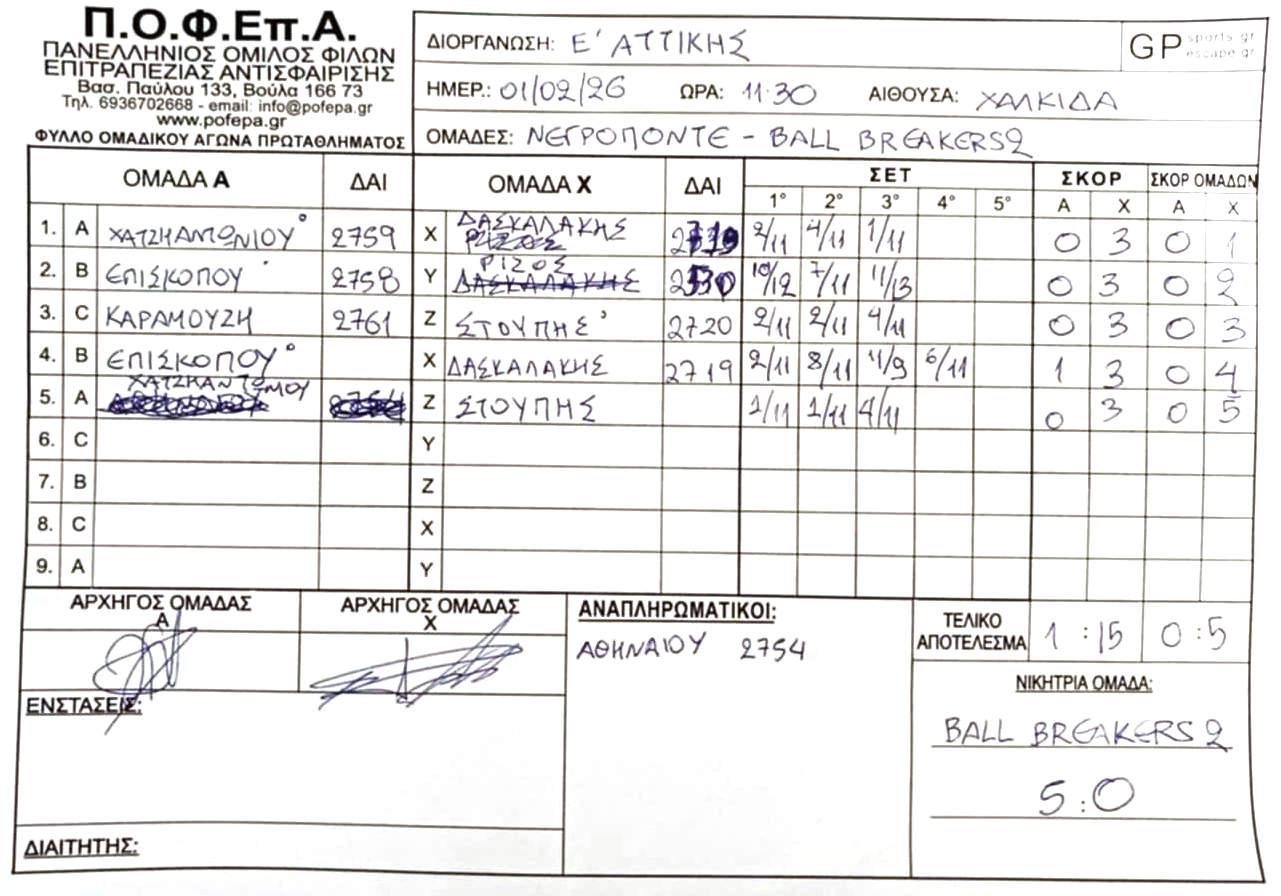 Π.Ο.Φ.Επ.Α.
ΠΑΝΕΛΛΗΝΙΟΣ ΟΜΙΛΟΣ ΦΙΛΩΝ
ΕΠΙΤΡΑΠΕΖΙΑΣ ΑΝΤΙΣΦΑΙΡΙΣΗΣ
Βασ. Παύλου 133, Βούλα 166 73
Τηλ. 6936702668 - email: info@pofepa.gr
www.pofepa.gr
ΦΥΛΛΟ ΟΜΑΔΙΚΟΥ ΑΓΩΝΑ ΠΡΩΤΑΘΛΗΜΑΤΟΣ
ΔΙΟΡΓΑΝΩΣΗ: Ε' ΑΤΤΙΚΗΣ
GP sports.gr
escape.gr
ΗΜΕΡ.: 01/02/26 ΩΡΑ: 11:30 ΑΙΘΟΥΣΑ: ΧΑΛΚΙΔΑ
ΟΜΑΔΕΣ: ΝΕΓΡΟΠΟΝΤΕ - BALL BREAKERS 2
ΟΜΑΔΑ Α ΔΑΙ ΟΜΑΔΑ Χ ΔΑΙ ΣΕΤ ΣΚΟΡ ΣΚΟΡ ΟΜΑΔΩΝ
1° 2° 3° 4° 5° Α Χ Α Χ
1. A ΧΑΤΖΗΑΝΤΩΝΙΟΥ 2759 X ΔΑΣΚΑΛΑΚΗΣ ΡΙΖΟΣ 2/11 4/11 1/11 0 3 0 1
2. B ΕΠΙΣΚΟΠΟΥ 2758 Y ΡΙΖΟΣ ΔΑΣΚΑΛΑΚΗΣ 10/12 7/11 11/13 0 3 0 2
3. C ΚΑΡΑΜΟΥΖΗ 2761 Z ΣΤΟΥΠΗΣ 2720 2/11 2/11 4/11 0 3 0 3
4. B ΕΠΙΣΚΟΠΟΥ X ΔΑΣΚΑΛΑΚΗΣ 2719 2/11 8/11 11/9 6/11 1 3 0 4
5. A ΧΑΤΖΗΑΝΤΩΝΙΟΥ Z ΣΤΟΥΠΗΣ 1/11 1/11 4/11 0 3 0 5
6. C Y
7. B Z
8. C X
9. A Y
ΑΡΧΗΓΟΣ ΟΜΑΔΑΣ Α
ΑΡΧΗΓΟΣ ΟΜΑΔΑΣ Χ
ΑΝΑΠΛΗΡΩΜΑΤΙΚΟΙ:
ΑΘΗΝΑΙΟΥ 2754
ΤΕΛΙΚΟ ΑΠΟΤΕΛΕΣΜΑ 1 : 15 0 : 5
ΝΙΚΗΤΡΙΑ ΟΜΑΔΑ:
BALL BREAKERS 2
5:0
ΕΝΣΤΑΣΕΙΣ:
ΔΙΑΙΤΗΤΗΣ: